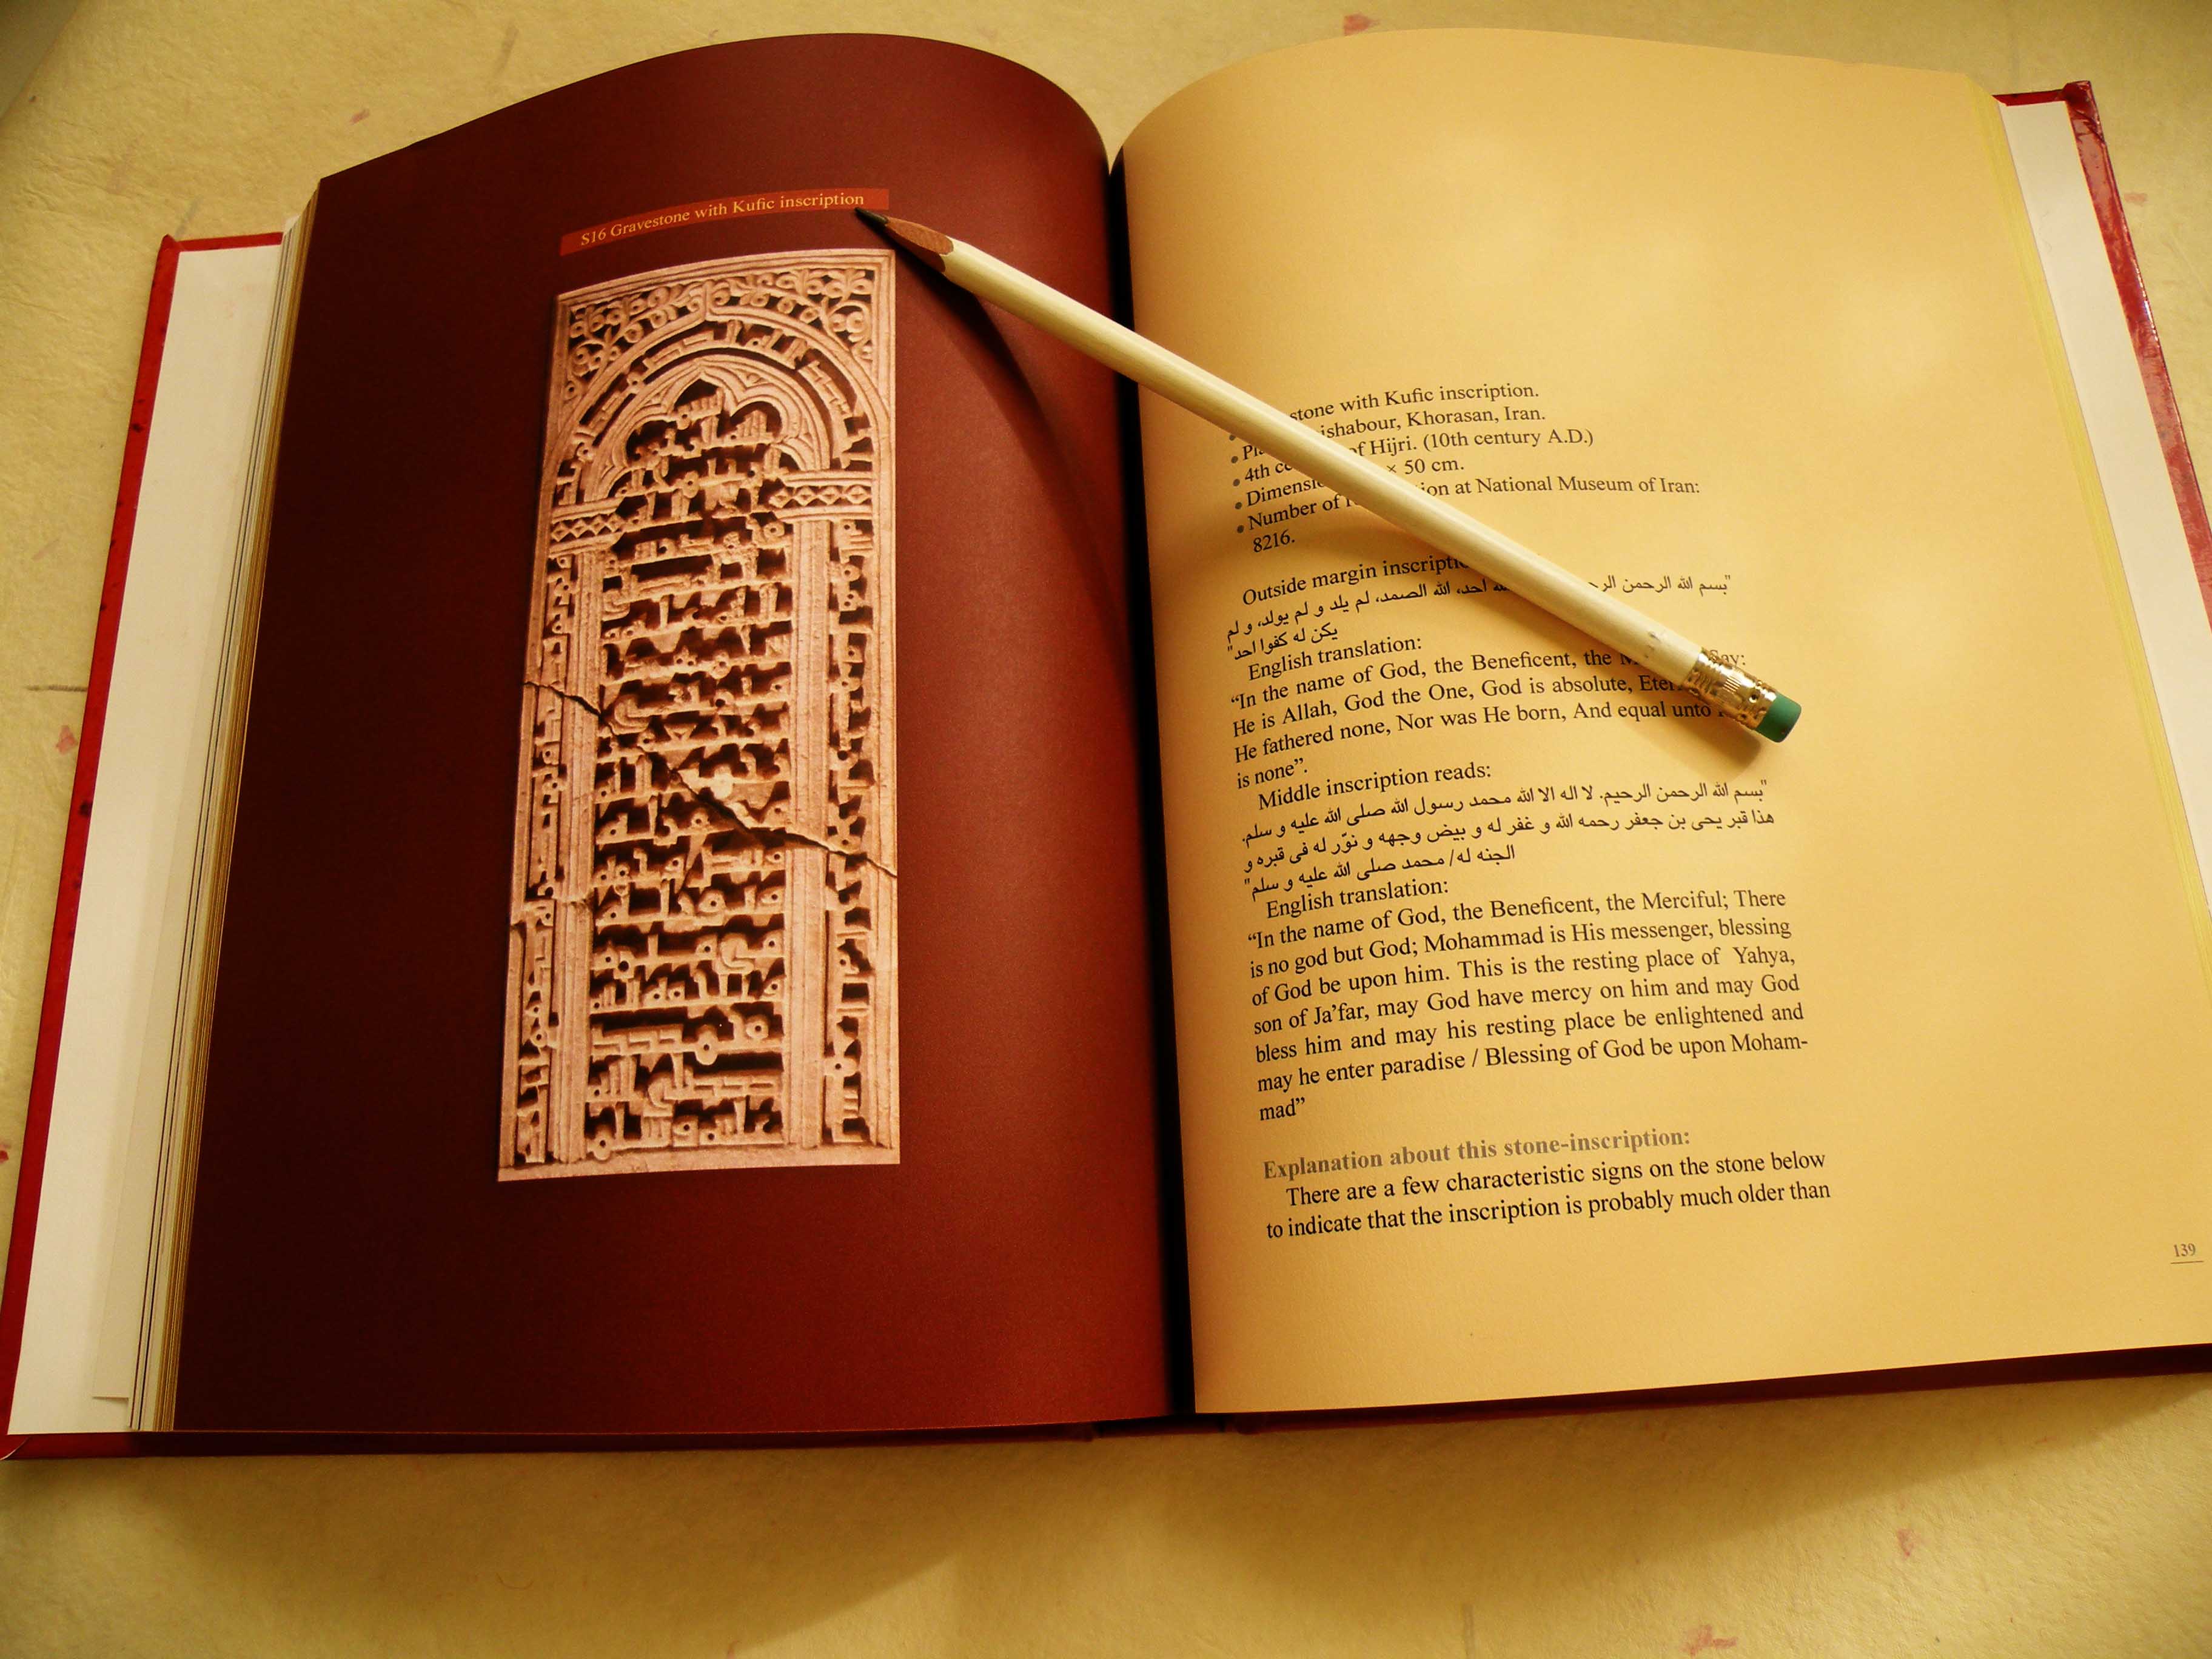 S16 Gravestone with Kufic inscription
stone with Kufic inscription.
ishabour, Khorasan, Iran.
4th of Hijri. (10th century A.D.)
× 50 cm.
Number of at National Museum of Iran:
8216.
Outside margin
"بسم الله الرحمن
احد، الله الصمد، لم يلد و لم يولد، و لم
يكن له كفوا احد"
English translation:
“In the name of God, the Beneficent, the Say:
He is Allah, God the One, God is absolute,
He fathered none, Nor was He born, And equal unto
is none”.
Middle inscription reads:
"بسم الله الرحمن الرحيم. لا اله الا الله محمد رسول الله صلى الله عليه و سلم.
هذا قبر يحى بن جعفر رحمه الله و غفر له و بيض وجهه و نوّر له فى قبره و
الجنه له/ محمد صلى الله عليه و سلم"
English translation:
“In the name of God, the Beneficent, the Merciful; There
is no god but God; Mohammad is His messenger, blessing
of God be upon him. This is the resting place of Yahya,
son of Ja’far, may God have mercy on him and may God
bless him and may his resting place be enlightened and
may he enter paradise / Blessing of God be upon Moham-
mad”
Explanation about this stone-inscription:
There are a few characteristic signs on the stone below
to indicate that the inscription is probably much older than
139